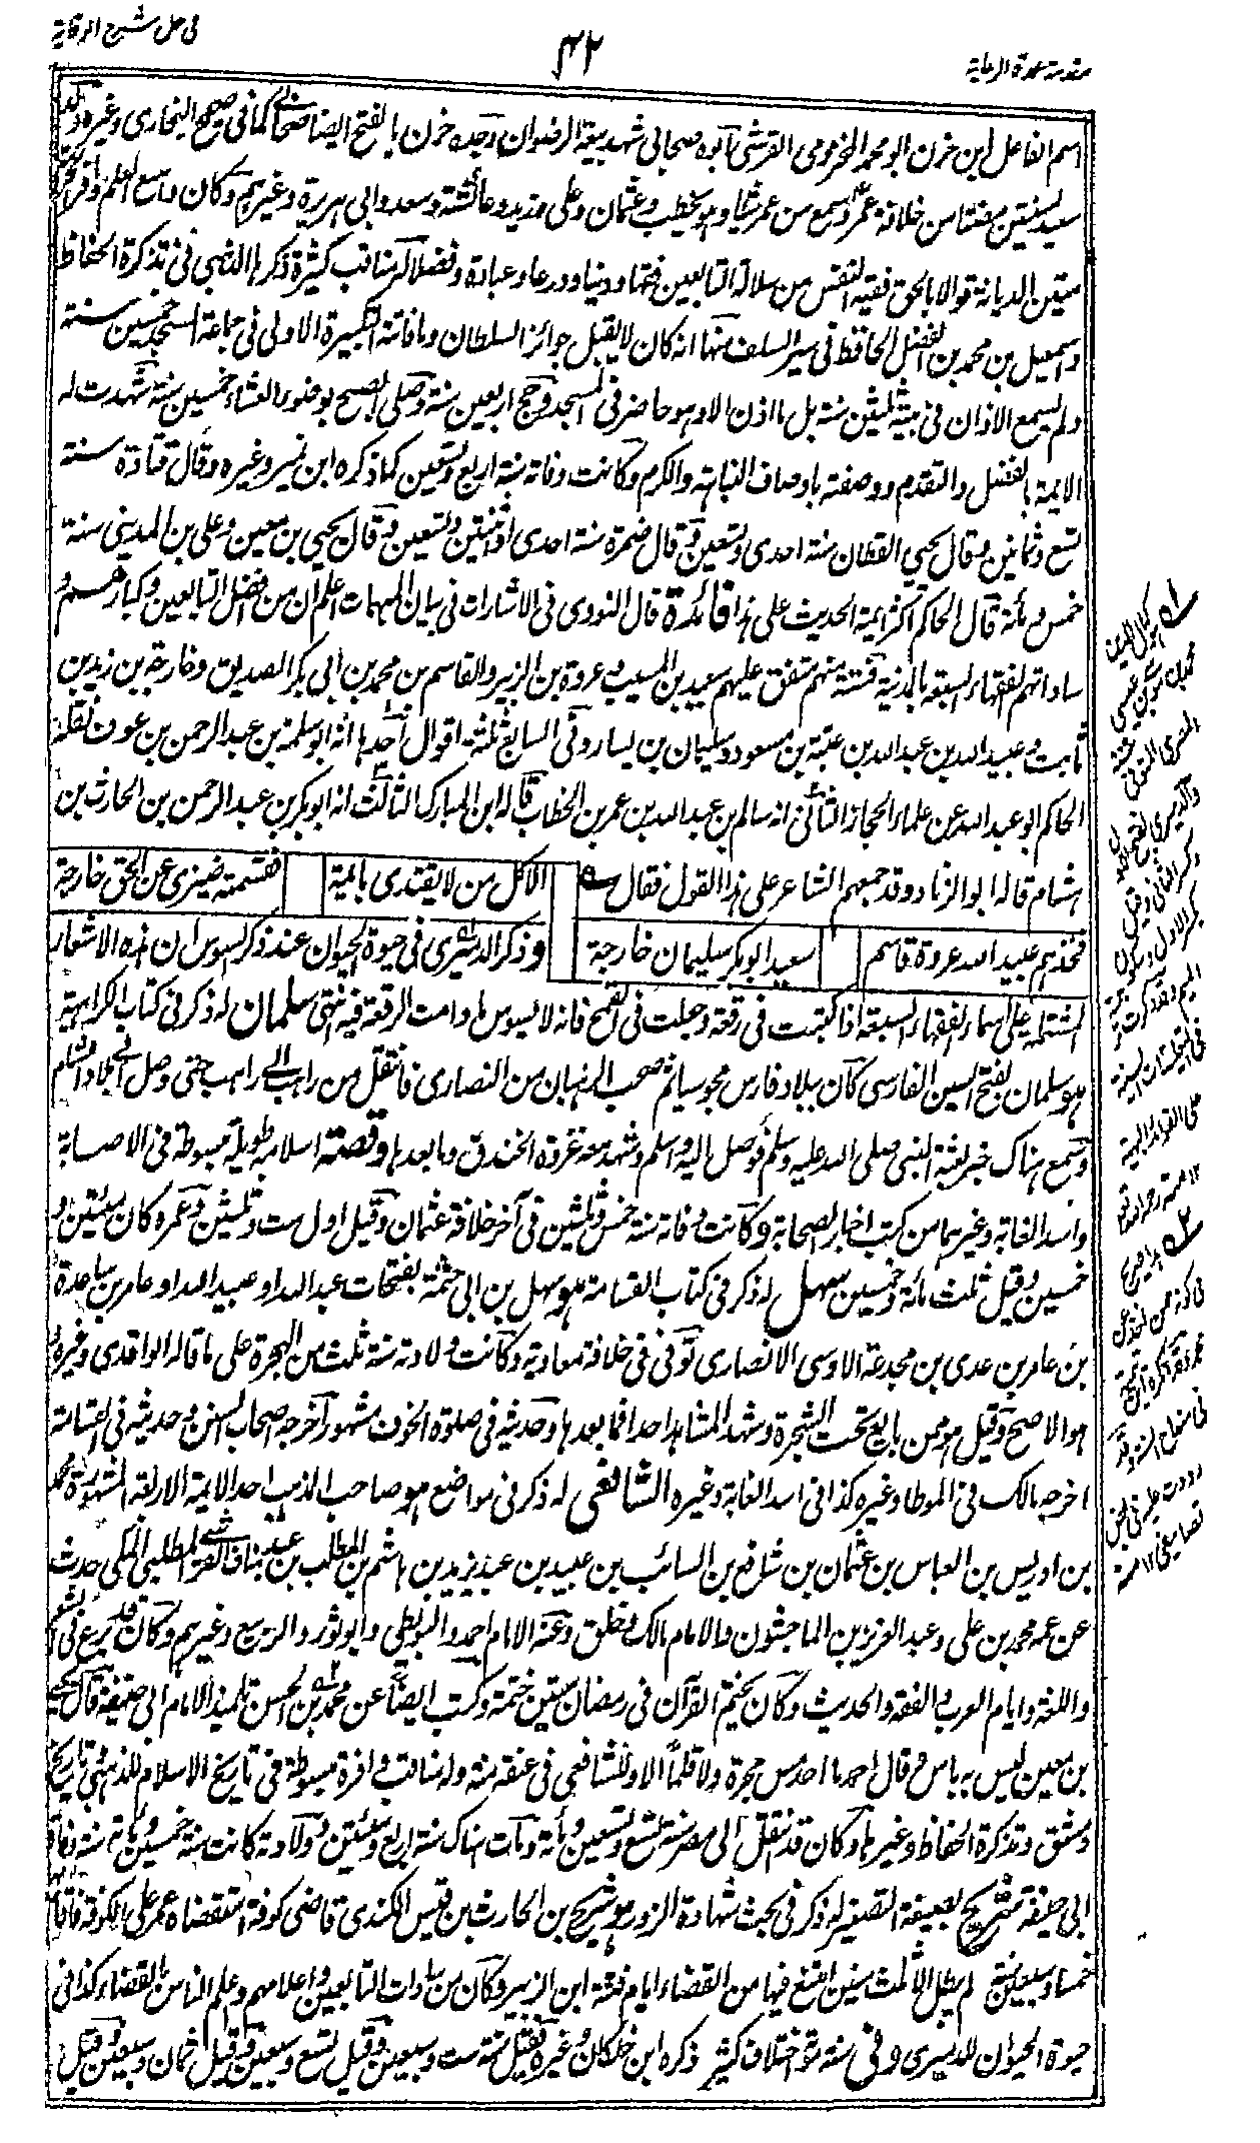 مقدمة عمدة الرعاية
٤٢
فى حل شرح الوقاية
اسم الفاعل ابن حزن ابو محمد المخزومى القرشى ابوه صحابى شهد بيعة الرضوان وجده حزن بالفتح ايضا صحابى كما فى صحيح البخارى وغيره ولد
سعيد لسنتين مضتا من خلافة عمر وسمع من عمر شيئا وهو يخطب وعثمان وعلى وزيد وعائشة وسعد وابى هريرة وغيرهم وكان واسع العلم وافر
متين الديانة قوالا بالحق فقيه النفس من سلالة التابعين فقها ودينا وورعا وعبادة وفضلا له مناقب كثيرة ذكرها الذهبى فى تذكرة الحفاظ
واسمعيل بن محمد بن الفضل الحافظ فى سير السلف منها انه كان لا يقبل جوائز السلطان وما فاتته التكبيرة الاولى فى جماعة المسجد خمسين سنة
ولم يسمع الاذان فى بيته ثلثين سنة بل ما اذن الا وهو حاضر فى المسجد وحج اربعين سنة وصلى الصبح بوضوء العشاء خمسين سنة شهدت له
الايمة بالفضل والتقدم ووصفته باوصاف النباهة والكرم وكانت وفاته سنة اربع وتسعين كما ذكره ابن نمير وغيره وقال قتادة سنة
تسع وثمانين وقال يحيى القطان سنة احدى وتسعين وقال ضمرة سنة احدى او ثنتين وتسعين وقال يحيى بن معين وعلى بن المدينى سنة
خمس ومائة قال الحاكم اكثر ايمة الحديث على هذا فائدة قال النووى فى الاشارات فى بيان المبهمات اعلم ان من افضل التابعين وكبارهم و
ساداتهم الفقهاء السبعة بالمدينة فستة منهم متفق عليهم سعيد بن المسيب وعروة بن الزبير والقاسم بن محمد بن ابى بكر الصديق وخارجة بن زيد بن
ثابت وعبيد الله بن عبد الله بن عتبة بن مسعود وسليمان بن يسار وفى السابع ثلثة اقوال احدها انه ابو سلمة بن عبد الرحمن بن عوف نقله
الحاكم ابو عبد الله عن علماء الحجاز الثانى انه سالم بن عبد الله بن عمر بن الخطاب قاله ابن المبارك الثالث انه ابو بكر بن عبد الرحمن بن الحارث بن
هشام قاله ابو الزناد وقد جمعهم الشاعر على هذا القول فقال سه الا كل من لا يقتدى بائمة فقسمته ضيزى عن الحق خارجة
فخذهم عبيد الله عروة قاسم سعيد ابو بكر سليمان خارجة وذكر الدميرى فى حيوة الحيوان عند ذكر السوس ان هذه الاشعار
المشتملة على اسماء الفقهاء السبعة اذا كتبت فى رقعة وجعلت فى القمح فانه لا يسوس ما دامت الرقعة فيه انتهى سلمان له ذكر فى كتاب الكراهية
هو سلمان بفتح السين الفارسى كان ببلاد فارس مجوسيا ثم صحب الرهبان من النصارى فانتقل من راهب الى راهب حتى وصل الى بلاد الشام
وسمع هناك خبر بعثة النبى صلى الله عليه وسلم فوصل اليه واسلم وشهد معه غزوة الخندق وما بعدها وقصة اسلامه طويلة مبسوطة فى الاصابة
واسد الغابة وغيرهما من كتب اخبار الصحابة وكانت وفاته سنة خمس وثلثين فى آخر خلافة عثمان وقيل اول ست وثلثين وعمره كان مئتين و
خمسين وقيل ثلث مائة وخمسين سهل له ذكر فى كتاب القسامة هو سهل بن ابى حثمة بفتحات عبد الله او عبيد الله او عامر بن ساعدة
بن عامر بن عدى بن مجدعة الاوسى الانصارى توفى فى خلافة معاوية وكانت ولادته سنة ثلث من الهجرة على ما قاله الواقدى وغيره و
هو الاصح وقيل هو ممن بايع تحت الشجرة وشهد المشاهد احدا فما بعدها وحديثه فى صلوة الخوف مشهور اخرجه اصحاب السنن وحديثه فى القسامة
اخرجه مالك فى الموطا وغيره كذا فى اسد الغابة وغيره الشافعى له ذكر فى مواضع هو صاحب المذهب احد الايمة الاربعة المشهورة محمد
بن ادريس بن العباس بن عثمان بن شافع بن السائب بن عبيد بن عبد يزيد بن هاشم بن المطلب بن عبد مناف القرشى المطلبى المكى حدث
عن عمه محمد بن على وعبد العزيز بن الماجشون والامام مالك وخلق وعنه الامام احمد والبويطى وابو ثور والربيع وغيرهم وكان قد برع فى الشعر
واللغة وايام العرب والفقه والحديث وكان يختم القرآن فى رمضان ستين ختمة وكتب ايضا عن محمد بن الحسن تلميذ الامام ابى حنيفة قال يحيى
بن معين ليس به باس وقال احمد ما احد مس محبرة ولا قلما الا وللشافعى فى عنقه منة وله مناقب وافرة مبسوطة فى تاريخ الاسلام للذهبى وتاريخ
دمشق وتذكرة الحفاظ وغيرها وكان قد انتقل الى مصر سنة تسع وتسعين ومائة ومات هناك سنة اربع ومئتين وولادته كانت سنة خمسين ومائة سنة وفاة
ابى حنيفة شريح بصيغة التصغير له ذكر فى بحث شهادة الزور هو شريح بن الحارث بن قيس الكندى قاضى كوفة استقضاه عمر على الكوفة فاقام
خمسا وسبعين سنة لم يبطل الا ثلث سنين امتنع فيها من القضاء ايام فتنة ابن الزبير وكان من سادات التابعين واعلامهم واعلم الناس بالقضاء كذا فى
حيوة الحيوان للدميرى وفى سنة موته اختلاف كثير ذكره ابن خلكان وغيره فقيل سنة ست وسبعين وقيل تسع وسبعين وقيل ثمان وسبعين وقيل
له هو كمال الدين
محمد بن موسى بن عيسى
المصرى المتوفى